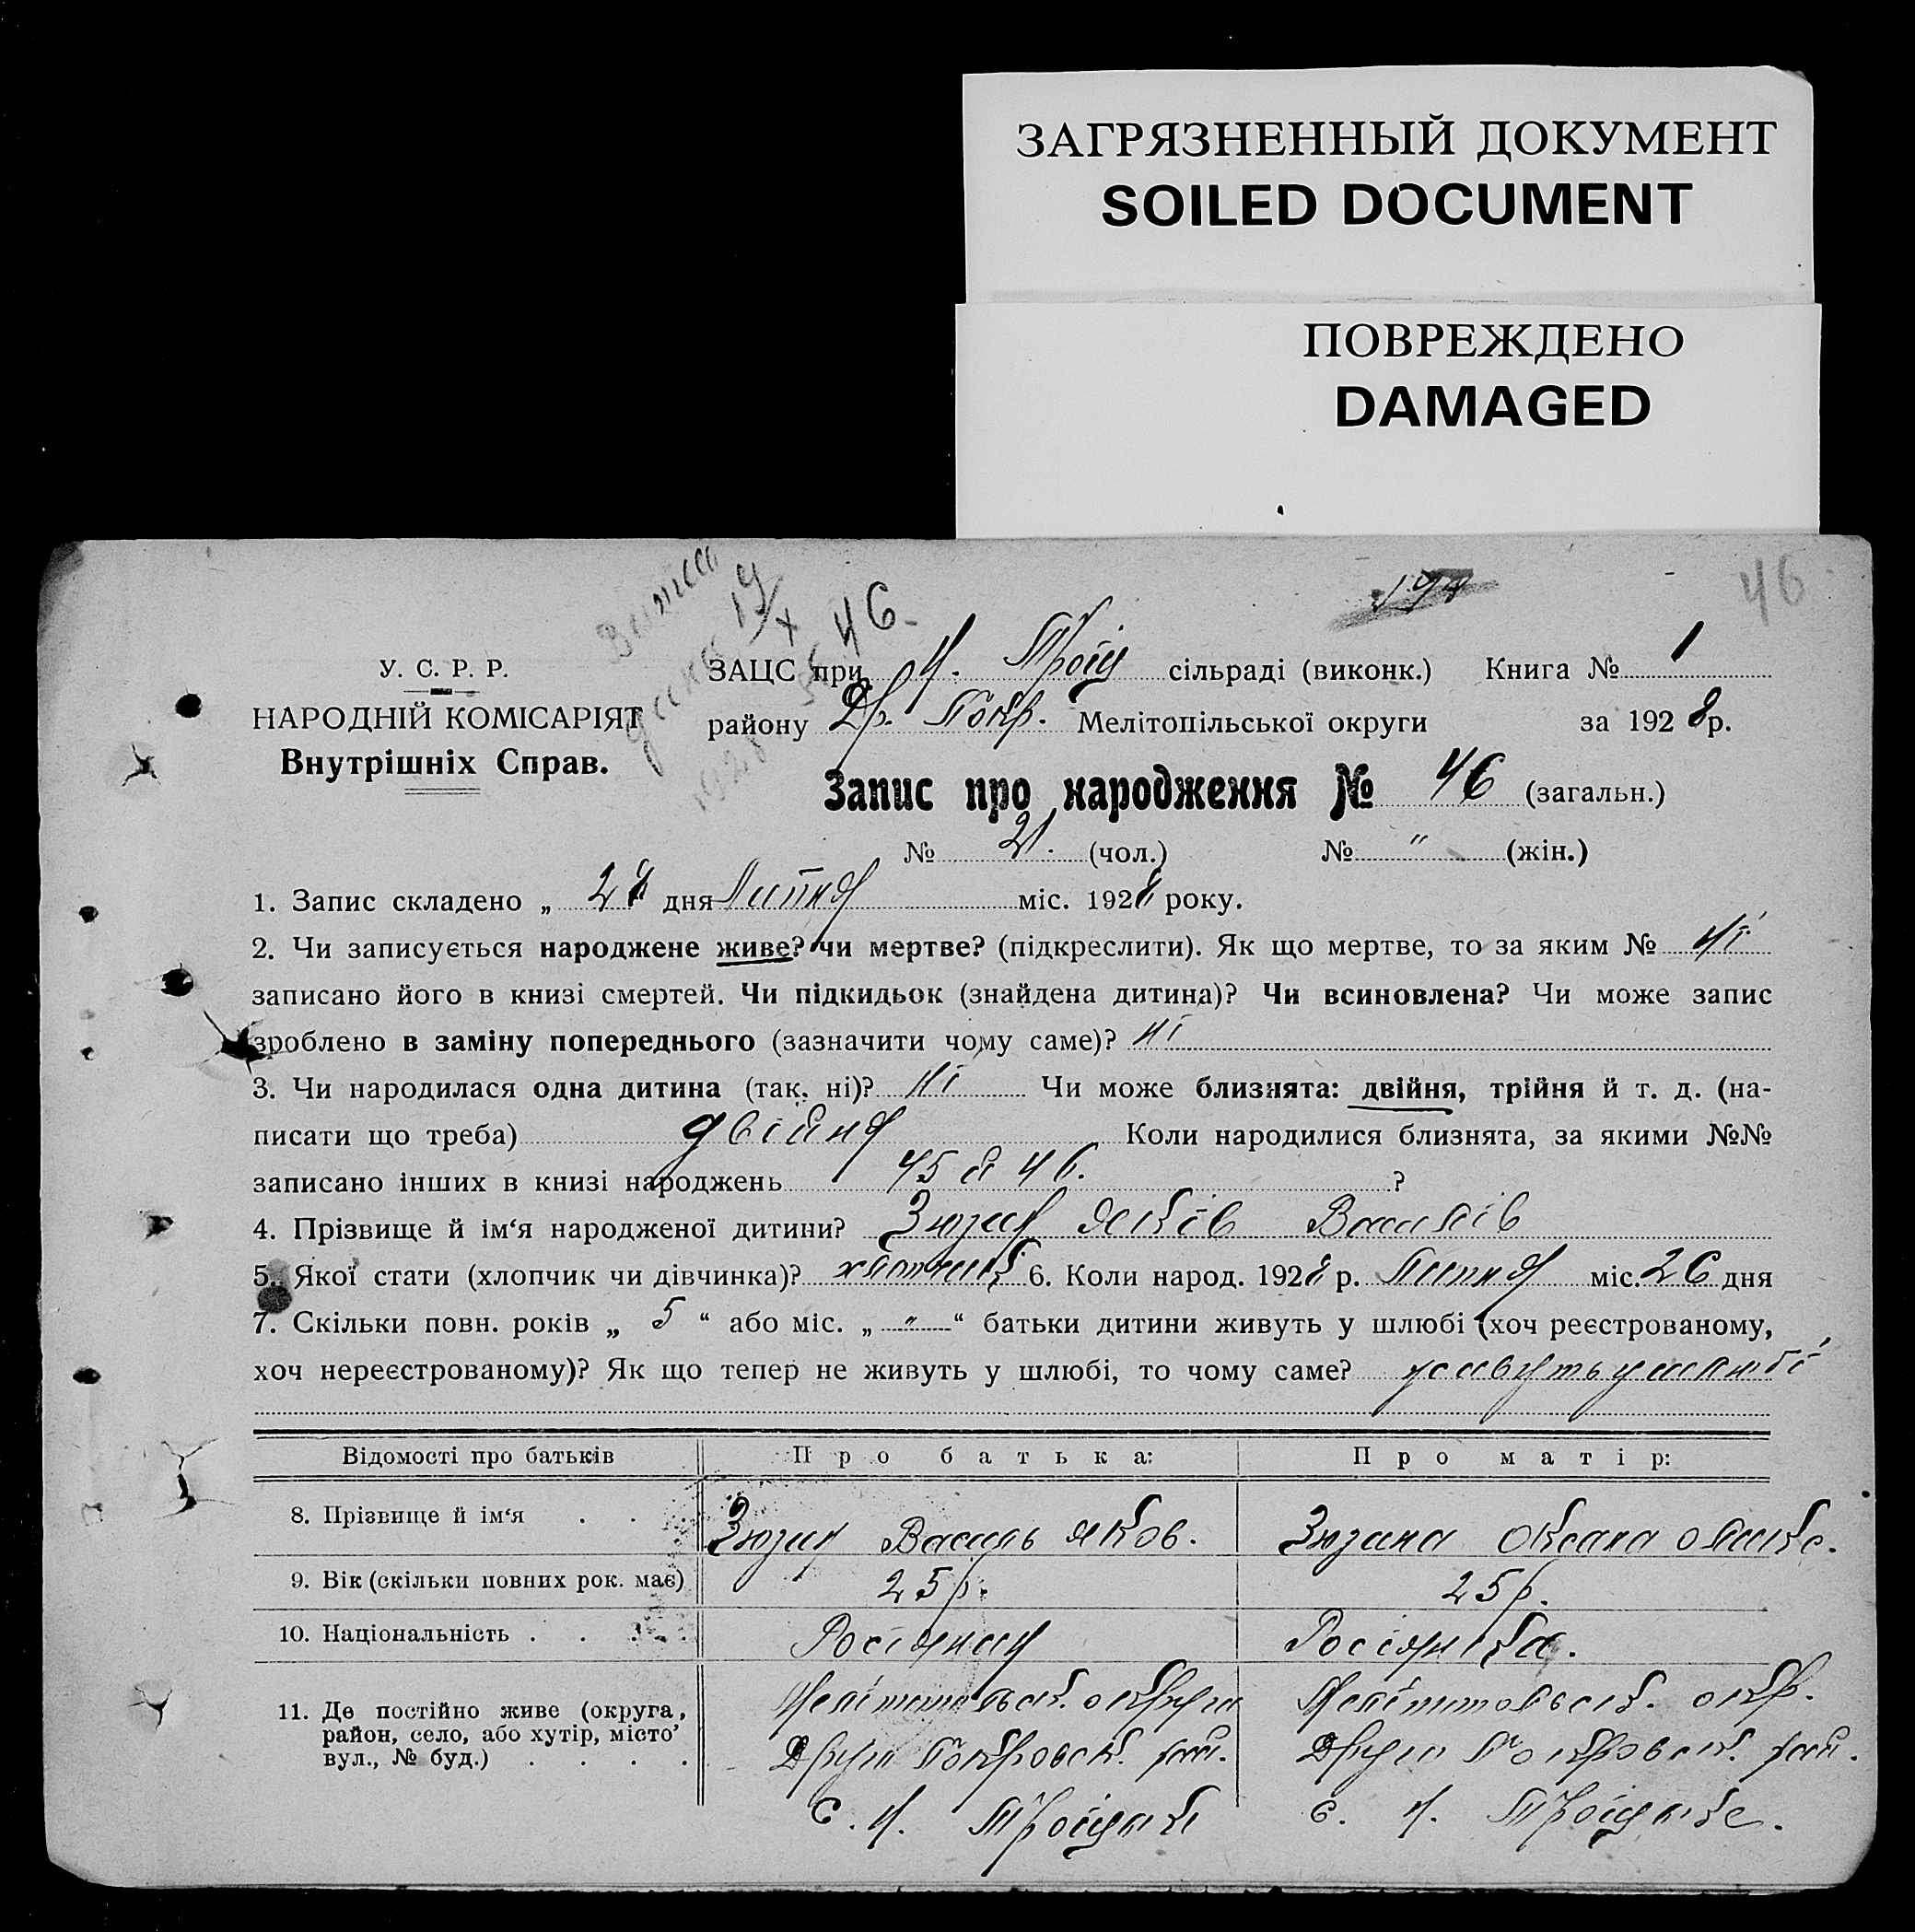 ЗАГРЯЗНЕННЫЙ ДОКУМЕНТ
SOILED DOCUMENT
ПОВРЕЖДЕНО
DAMAGED
46
46
У. С. Р. Р.
НАРОДНІЙ КОМІСАРІЯТ
Внутрішніх Справ.
ЗАЦС при Н. Троїц сільраді (виконк.) Книга № 1
району Др. Покр. Мелітопільської округи за 1928 р.
Запис про народження № 46 (загальн.)
№ 21. (чол.) № " (жін.)
1. Запис складено „ 28 дня Липня міс. 1928 року.
2. Чи записується народжене живе? чи мертве? (підкреслити). Як що мертве, то за яким № ні
записано його в книзі смертей. Чи підкидьок (знайдена дитина)? Чи всиновлена? Чи може запис
зроблено в заміну попереднього (зазначити чому саме)? ні
3. Чи народилася одна дитина (так, ні)? ні Чи може близнята: двійня, трійня й т. д. (на-
писати що треба) двійня Коли народилися близнята, за якими №№
записано інших в книзі народжень 45 й 46. ?
4. Прізвище й ім‘я народженої дитини? Зюзин Яків Василів
5. Якої стати (хлопчик чи дівчинка)? хлопчик 6. Коли народ. 1928 р. Липня міс. 26 дня
7. Скільки повн. років „ 5 “ або міс. „ " “ батьки дитини живуть у шлюбі (хоч реєстрованому,
хоч нереєстрованому)? Як що тепер не живуть у шлюбі, то чому саме? живуть у шлюбі
Відомості про батьків Про батька: Про матір:
8. Прізвище й ім‘я . . . Зюзин Василь Яков. Зюзина Оксана
9. Вік (скільки повних рок. має) 25 р. 25 р.
10. Національність . . . Росіянин Росіянка.
11. Де постійно живе (округа, район, село, або хутір, місто’ вул., № буд.) . . . .
Мелітопольськ. округи
Друго Покровськ. рай.
с. Н. Троїцьк
Мелітопольськ. окр.
Друго Покровськ. рай.
с. Н. Троїцьке.